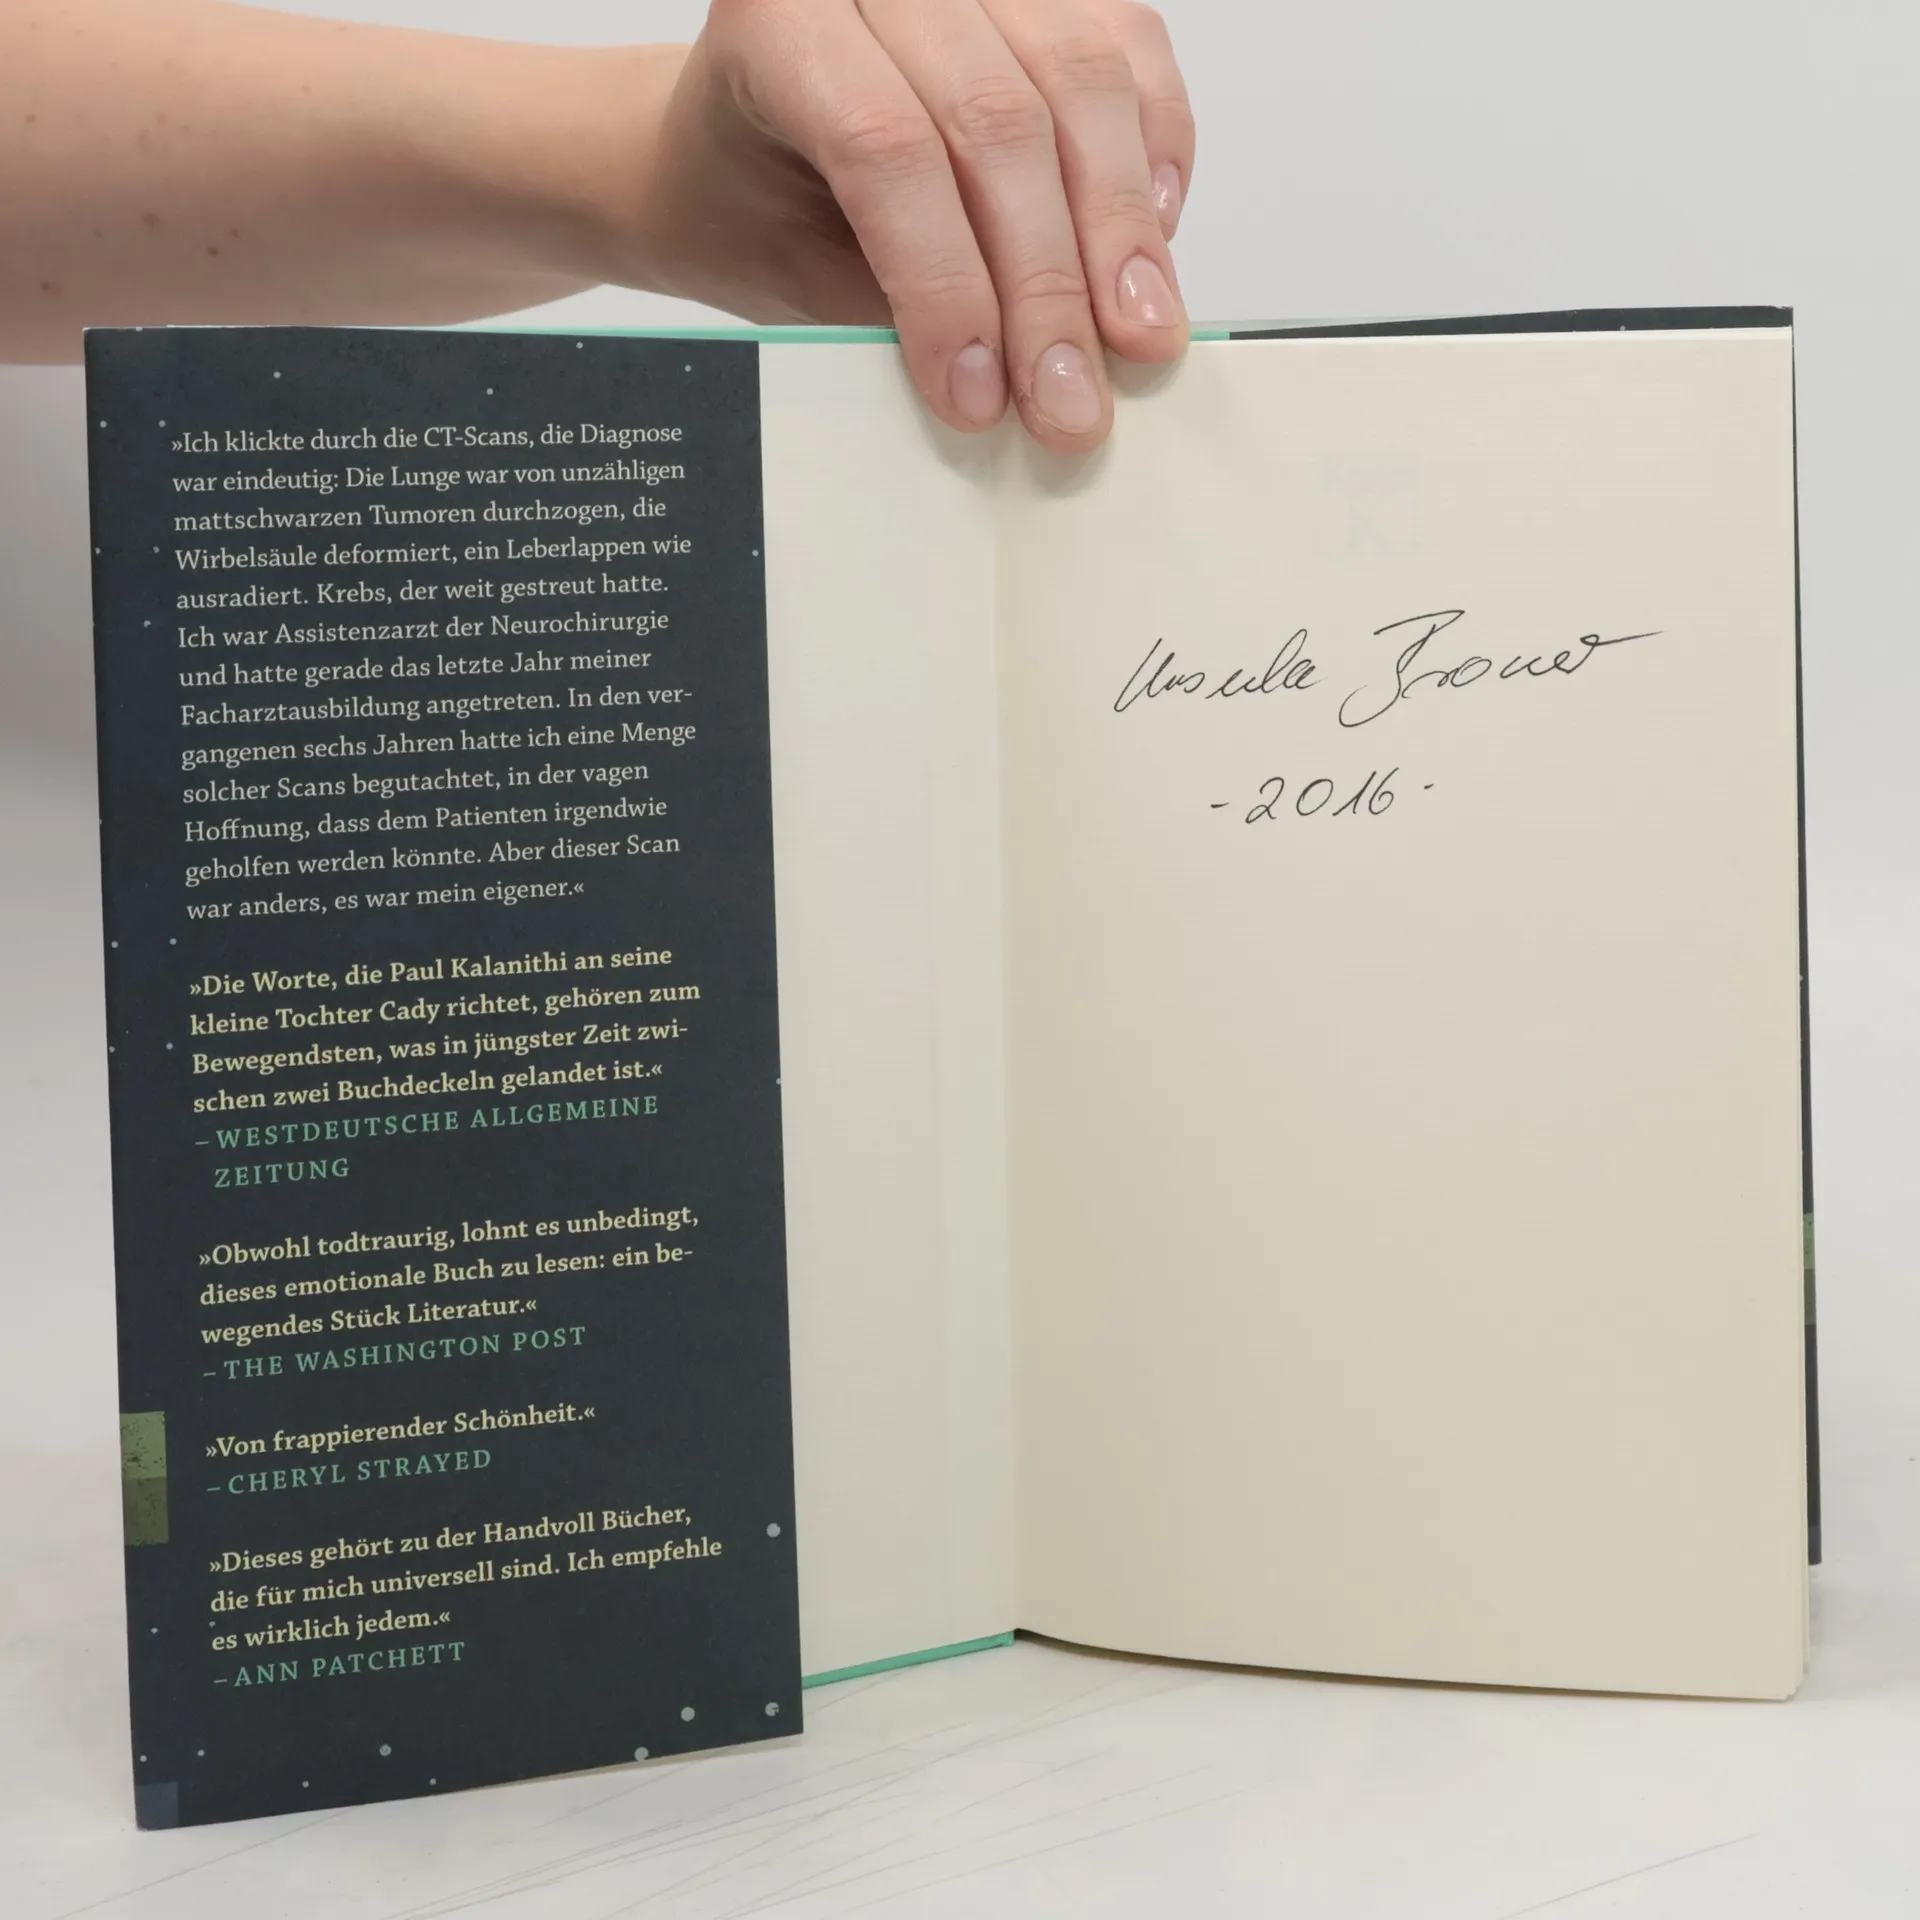 »Ich klickte durch die CT-Scans, die Diagnose
war eindeutig: Die Lunge war von unzähligen
mattschwarzen Tumoren durchzogen, die
Wirbelsäule deformiert, ein Leberlappen wie
ausradiert. Krebs, der weit gestreut hatte.
Ich war Assistenzarzt der Neurochirurgie
und hatte gerade das letzte Jahr meiner
Facharztausbildung angetreten. In den ver-
gangenen sechs Jahren hatte ich eine Menge
solcher Scans begutachtet, in der vagen
Hoffnung, dass dem Patienten irgendwie
geholfen werden könnte. Aber dieser Scan
war anders, es war mein eigener.«
»Die Worte, die Paul Kalanithi an seine
kleine Tochter Cady richtet, gehören zum
Bewegendsten, was in jüngster Zeit zwi-
schen zwei Buchdeckeln gelandet ist.«
– WESTDEUTSCHE ALLGEMEINE
ZEITUNG
»Obwohl todtraurig, lohnt es unbedingt,
dieses emotionale Buch zu lesen: ein be-
wegendes Stück Literatur.«
– THE WASHINGTON POST
»Von frappierender Schönheit.«
– CHERYL STRAYED
»Dieses gehört zu der Handvoll Bücher,
die für mich universell sind. Ich empfehle
es wirklich jedem.«
– ANN PATCHETT
Ursula
- 2016 -